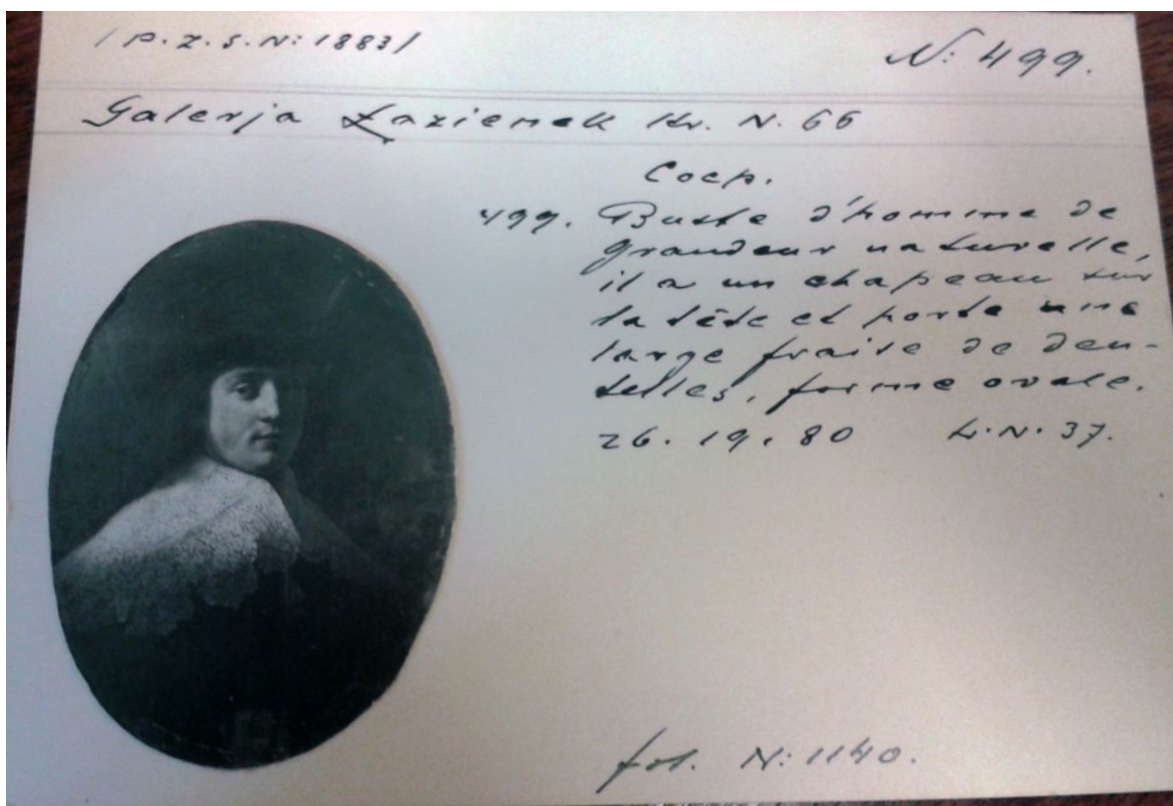 /P.Z.S.N: 1883/
N: 499.
Galerja Łazienek Kr. N. 66
Coep.
499. Buste d'homme de
grandeur naturelle,
il a un chapeau sur
la tête et porte une
large fraise de den-
telles, forme ovale.
26. 19. 80 Ł.N. 37.
fot. N: 1140.